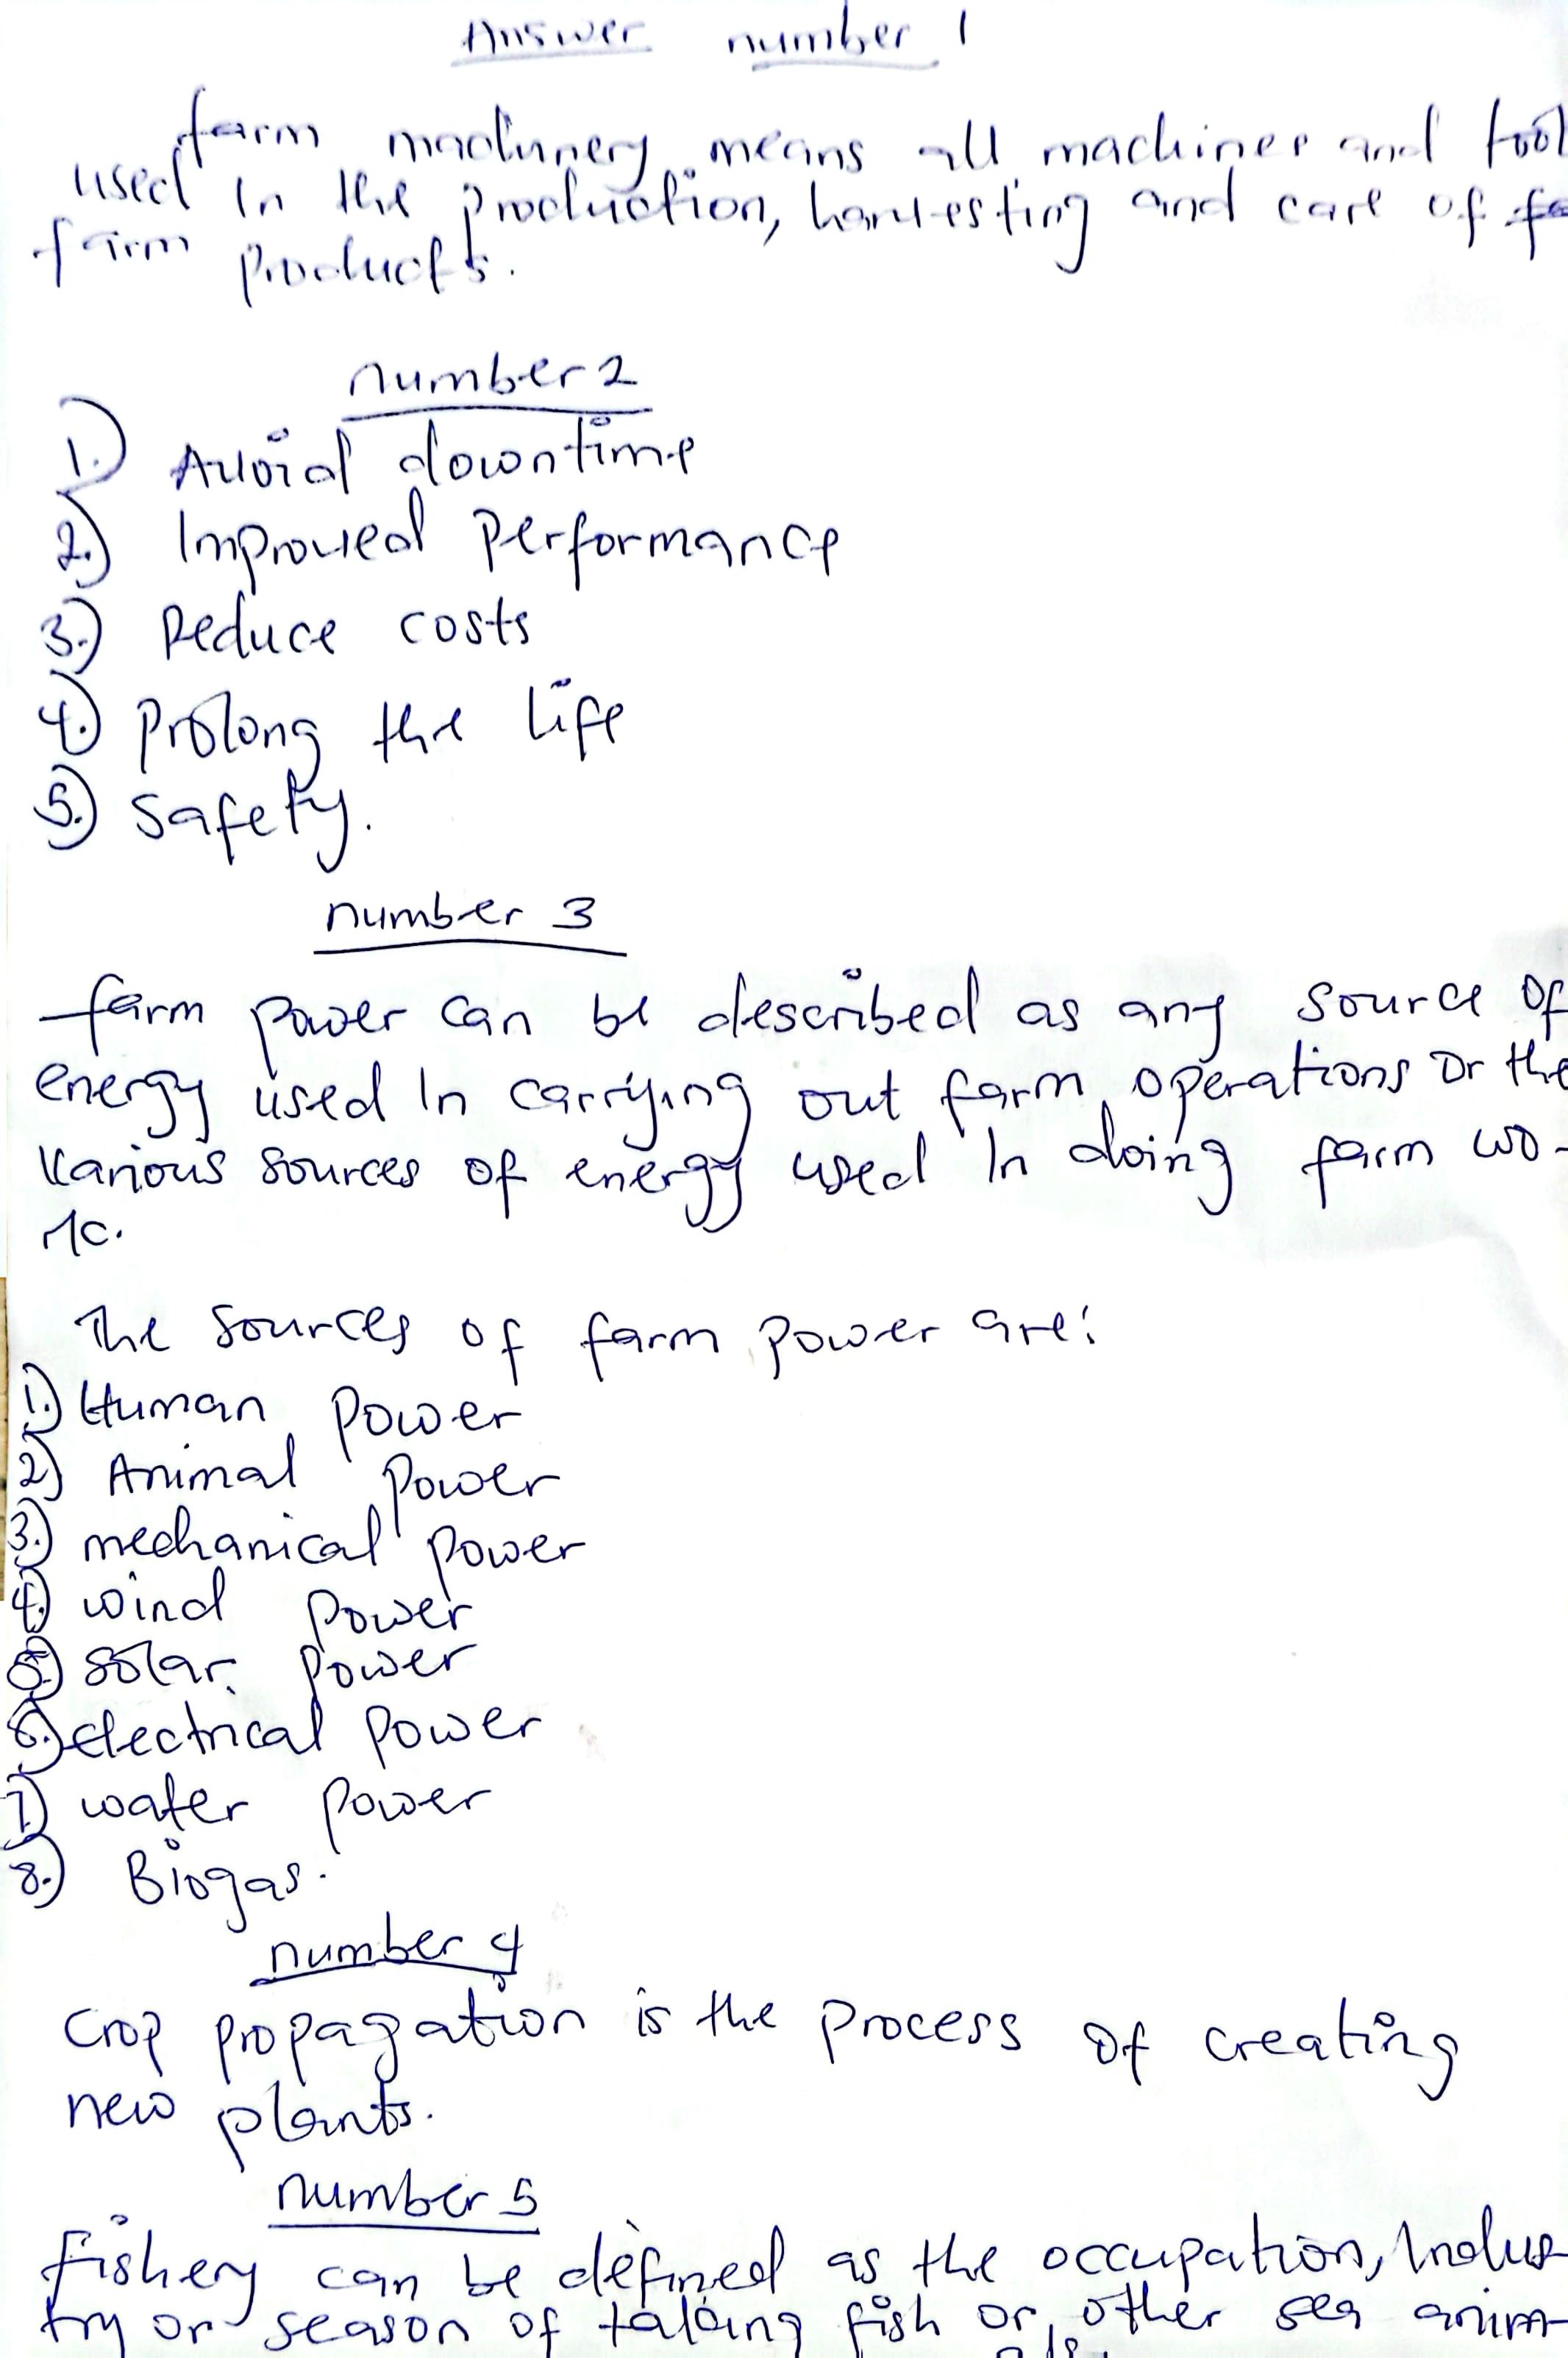 Answer number 1
farm machinery means all machines and tool
used In the production, harvesting and care of fa
farm products.
number 2
1.) Avoid downtime
2.) Improved Performance
3.) Reduce costs
4.) Prolong the life
5.) Safety.
number 3
farm power can be described as any source Of
energy used In carrying out farm operations Or the
Various sources of energy used In doing farm wo-
rk.
The sources of farm power are:
1.) Human Power
2) Animal Power
3.) mechanical power
4.) wind Power
5.) solar power
6.) electrical power
7.) water power
8.) Biogas.
number 4
Crop propagation is the process Of creating
new plants.
number 5
Fishery can be defined as the occupation, Indus-
try or season of taking fish or other sea anim-
als.